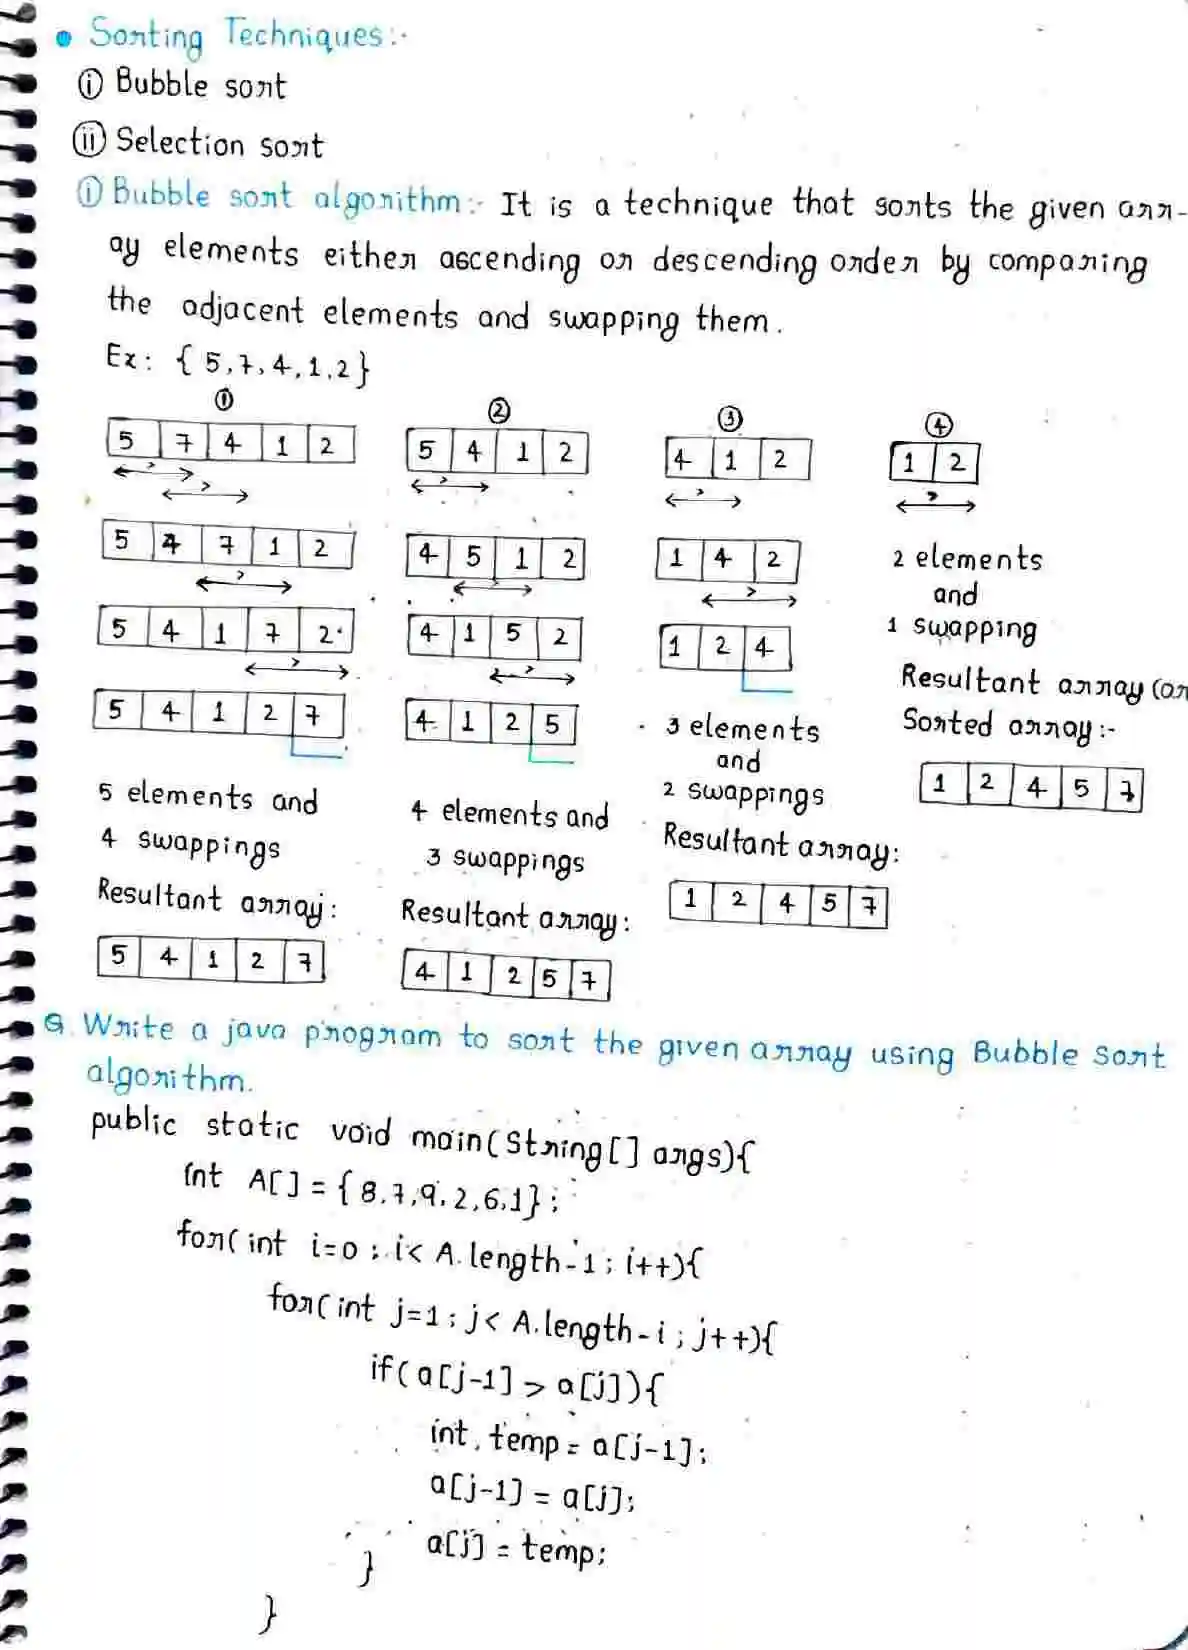 • Sorting Techniques:-
(i) Bubble sort
(ii) Selection sort
(i) Bubble sort algorithm:- It is a technique that sorts the given arr-
ay elements either ascending or descending order by comparing
the adjacent elements and swapping them.
Ex: { 5, 7, 4, 1, 2 }
①
5 7 4 1 2
>
>
5 4 7 1 2
>
5 4 1 7 2
>
5 4 1 2 7
5 elements and
4 swappings
Resultant array:
5 4 1 2 7
②
5 4 1 2
>
4 5 1 2
>
4 1 5 2
>
4 1 2 5
4 elements and
3 swappings
Resultant array:
4 1 2 5 7
③
4 1 2
>
1 4 2
>
1 2 4
3 elements
and
2 swappings
Resultant array:
1 2 4 5 7
④
1 2
?
2 elements
and
1 swapping
Resultant array (or
Sorted array:-
1 2 4 5 7
Q. Write a java program to sort the given array using Bubble Sort
algorithm.
public static void main(String[] args){
int A[] = { 8, 7, 9, 2, 6, 1 };
for( int i=0 ; i< A.length-1 ; i++){
for( int j=1 ; j< A.length-i ; j++){
if( a[j-1] > a[j]){
int temp = a[j-1];
a[j-1] = a[j];
a[j] = temp;
}
}